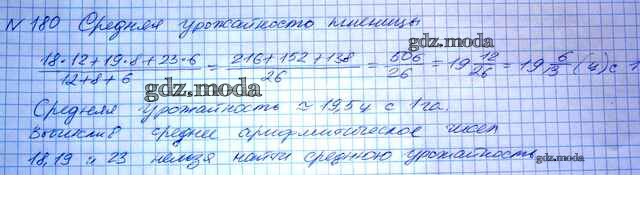 № 180 Средняя урожайность пшеницы
gdz.moda
(18·12+19·8+23·6)/(12+8+6) = (216+152+138)/26 = 506/26 = 19 12/26 = 19 6/13 (ц) с 1
gdz.moda
gdz.moda
Средняя урожайность ≈ 19,5 ц с 1 га.
gdz.moda
среднее арифметическое чисел
18, 19 и 23 нельзя найти среднюю урожайность
gdz.moda